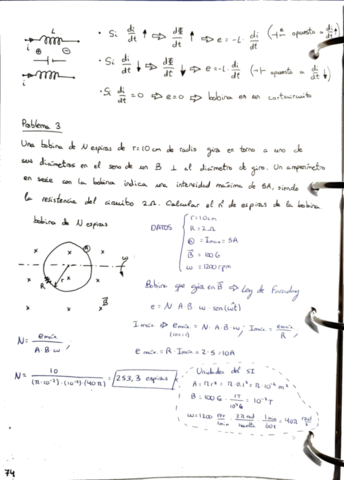 L
i
· Si di/dt ↑ ⇒ dΦ/dt ↑ ⇒ e = -L · di/dt (⊣⊢ e opuesto a di/dt ↑)
· Si di/dt ↓ ⇒ dΦ/dt ↓ ⇒ e = -L · di/dt (⊣⊢ opuesto a di/dt ↓)
· Si di/dt = 0 ⇒ e = 0 ⇒ bobina es un cortocircuito
Problema 3
Una bobina de N espiras de r = 10 cm de radio gira en torno a uno de
sus diámetros en el seno de un B ⊥ al diámetro de giro. Un amperímetro
en serie con la bobina indica una intensidad máxima de 5A, siendo
la resistencia del circuito 2Ω. Calcular el nº de espiras de la bobina
bobina de N espiras
DATOS
r = 10 cm
R = 2Ω
Ⓐ = Imax = 5A
B = 100 G
ω = 1200 rpm
R
r
ω
B
Bobina que gira en B ⇒ Ley de Faraday
e = N · A · B · ω · sen(ωt)
I max ⇒ e max = N · A · B · ω ; I max = e max / R
e max = R · I max = 2 · 5 = 10A
N = e max / A · B · ω
N = 10 / (π · 10⁻²) · (10⁻²) · (40π) = 253,3 espiras
Unidades del SI
A = π · r² = π · 0,1² = π · 10⁻² m²
B = 100 G · 1T / 10⁴G = 10⁻² T
ω = 1200 rev/min · 2π rad / 1 vuelta · 1 min / 60 s = 40π rad/s
74